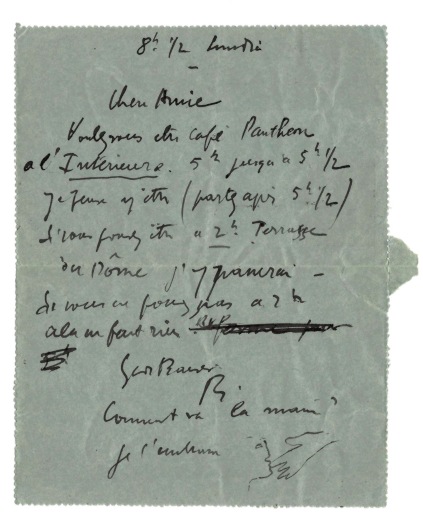 8h 1/2 Lundi
Chere Amie
Voulez vous etre café Pantheon
a l'Interieure. 5h jusqu'a 5h 1/2
je peux y etre (partez apres 5h 1/2)
Si vous pouvez etre a 2h Terrasse
du Dôme j'y passerai -
Si vous ne pouvez pas a 2h
cela ne fait rien

Comment va la main?
je l'embrasse